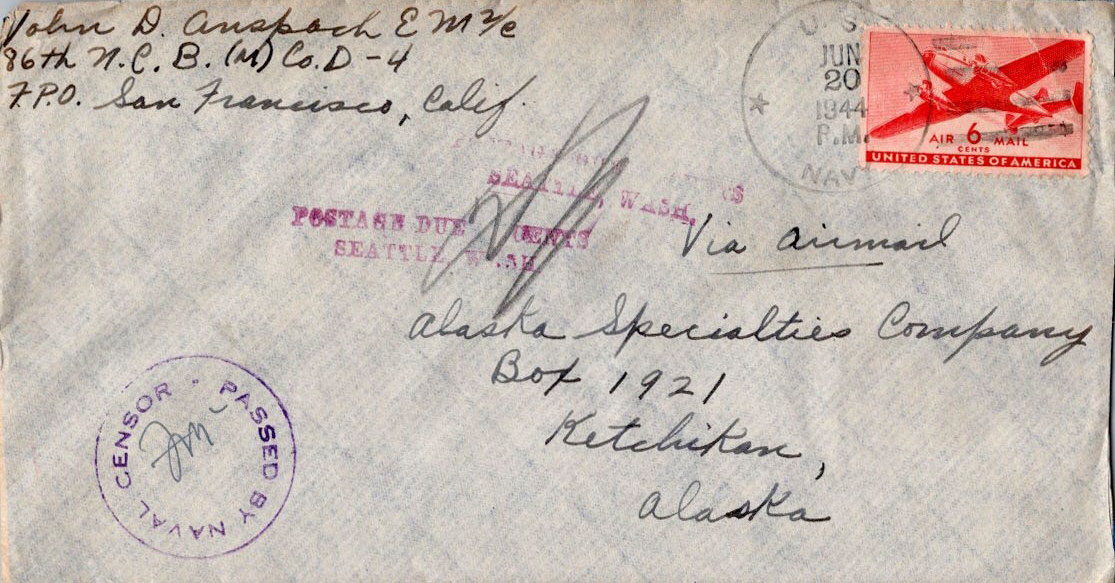 John D. Anspach E M 2/c
86th N.C.B. (M) Co. D-4
F.P.O. San Francisco, Calif.
U.S.
JUN
20
1944
P.M.
NAVY
AIR 6 MAIL
CENTS
UNITED STATES OF AMERICA
SEATTLE, WASH.
POSTAGE DUE CENTS
SEATTLE, WASH
Via Airmail
Alaska Specialties Company
Box 1921
Ketchikan,
Alaska
PASSED BY NAVAL CENSOR